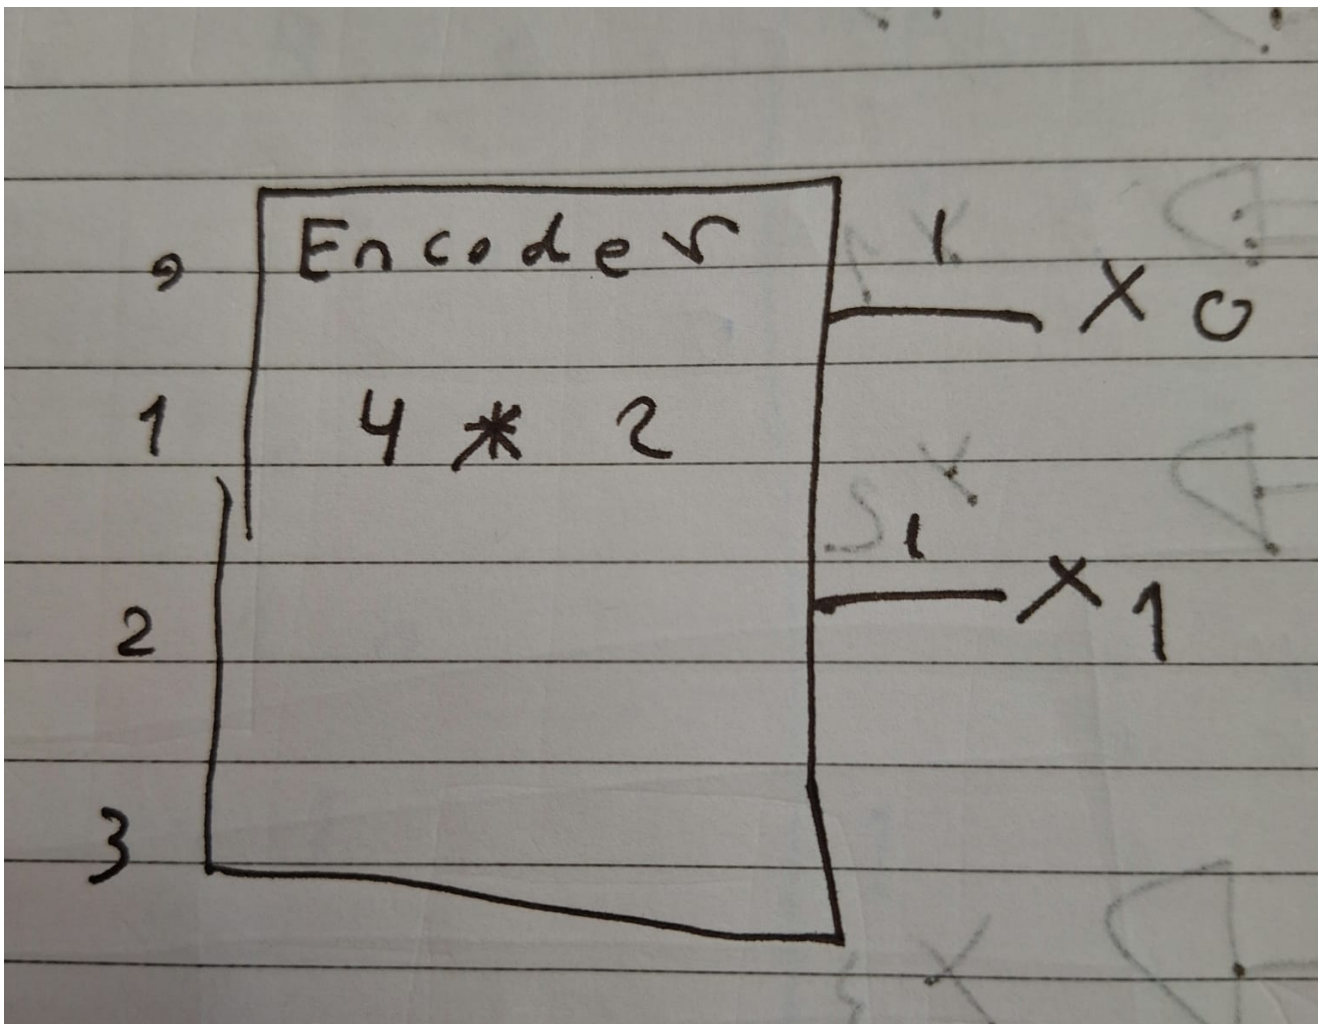 Encoder
0
1
X 0
1
4 * 2
1
X 1
2
3